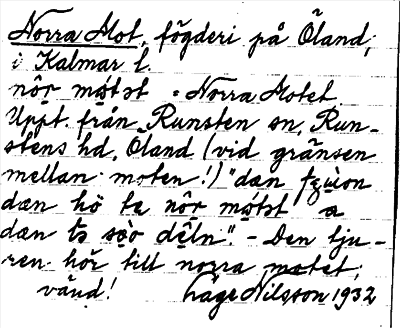 Norra Mot, fögderi på Öland,
i Kalmar l.
nôr mo̱tət = Norra Motet.
Uppt. från Runsten sn, Run-
stens hd, Öland (vid gränsen
mellan moten!) "dæn
dæn hö nôr mo̱tət a
dæn dêln". - Den tju-
ren hör till norra motet,
vänd! Åke Nilsson 1932